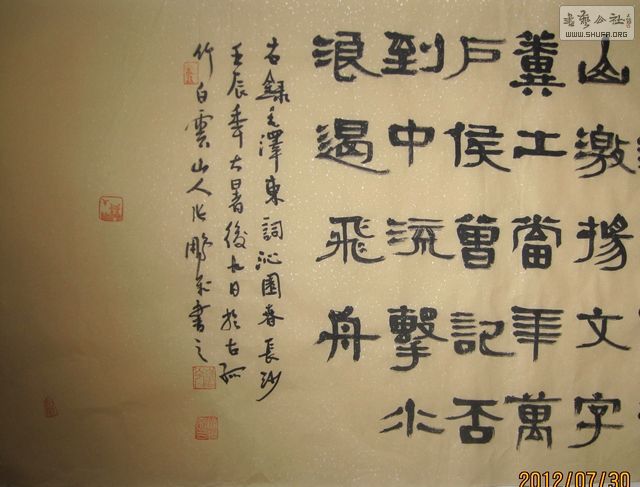 山激揚文字
糞土當年萬
戶侯曾記否
到中流擊水
浪遏飛舟
右錄毛澤東詞沁園春長沙
壬辰年大暑後九日於古孤
竹白雲山人張鵬書之
書藝公社
WWW.SHUFA.ORG
2012/07/30